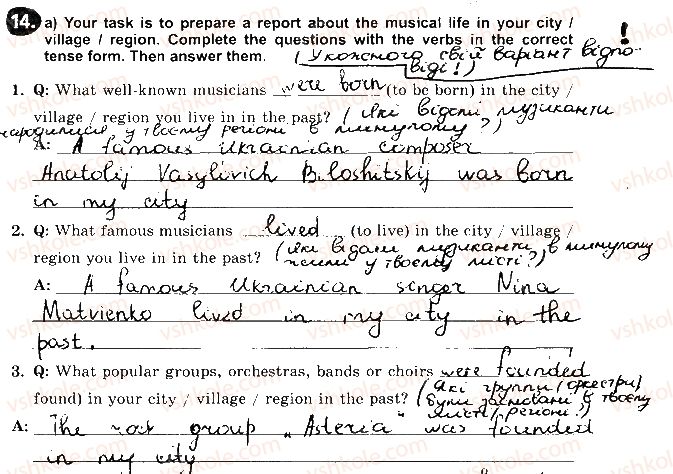 14. a) Your task is to prepare a report about the musical life in your city /
village / region. Complete the questions with the verbs in the correct
tense form. Then answer them. (У кожного свій варіант відпо-
віді!)!
1. Q: What well-known musicians were born (to be born) in the city /
village / region you live in in the past? (Які відомі музиканти
народилися у твоєму регіоні в минулому?)
A: A famous Ukrainian composer
Anatolij Vasylivich Biloshitskij was born
in my city
2. Q: What famous musicians lived (to live) in the city / village /
region you live in in the past? (Які відомі музиканти в минулому
жили у твоєму місті?)
A: A famous Ukrainian senger Nina
Matvienko lived in my city in the
past.
3. Q: What popular groups, orchestras, bands or choirs were founded
found) in your city / village / region in the past? (Які групи (оркестри)
були засновані в твоєму
місті/регіоні?)
A: The rock group "Asteria" was founded
in my city